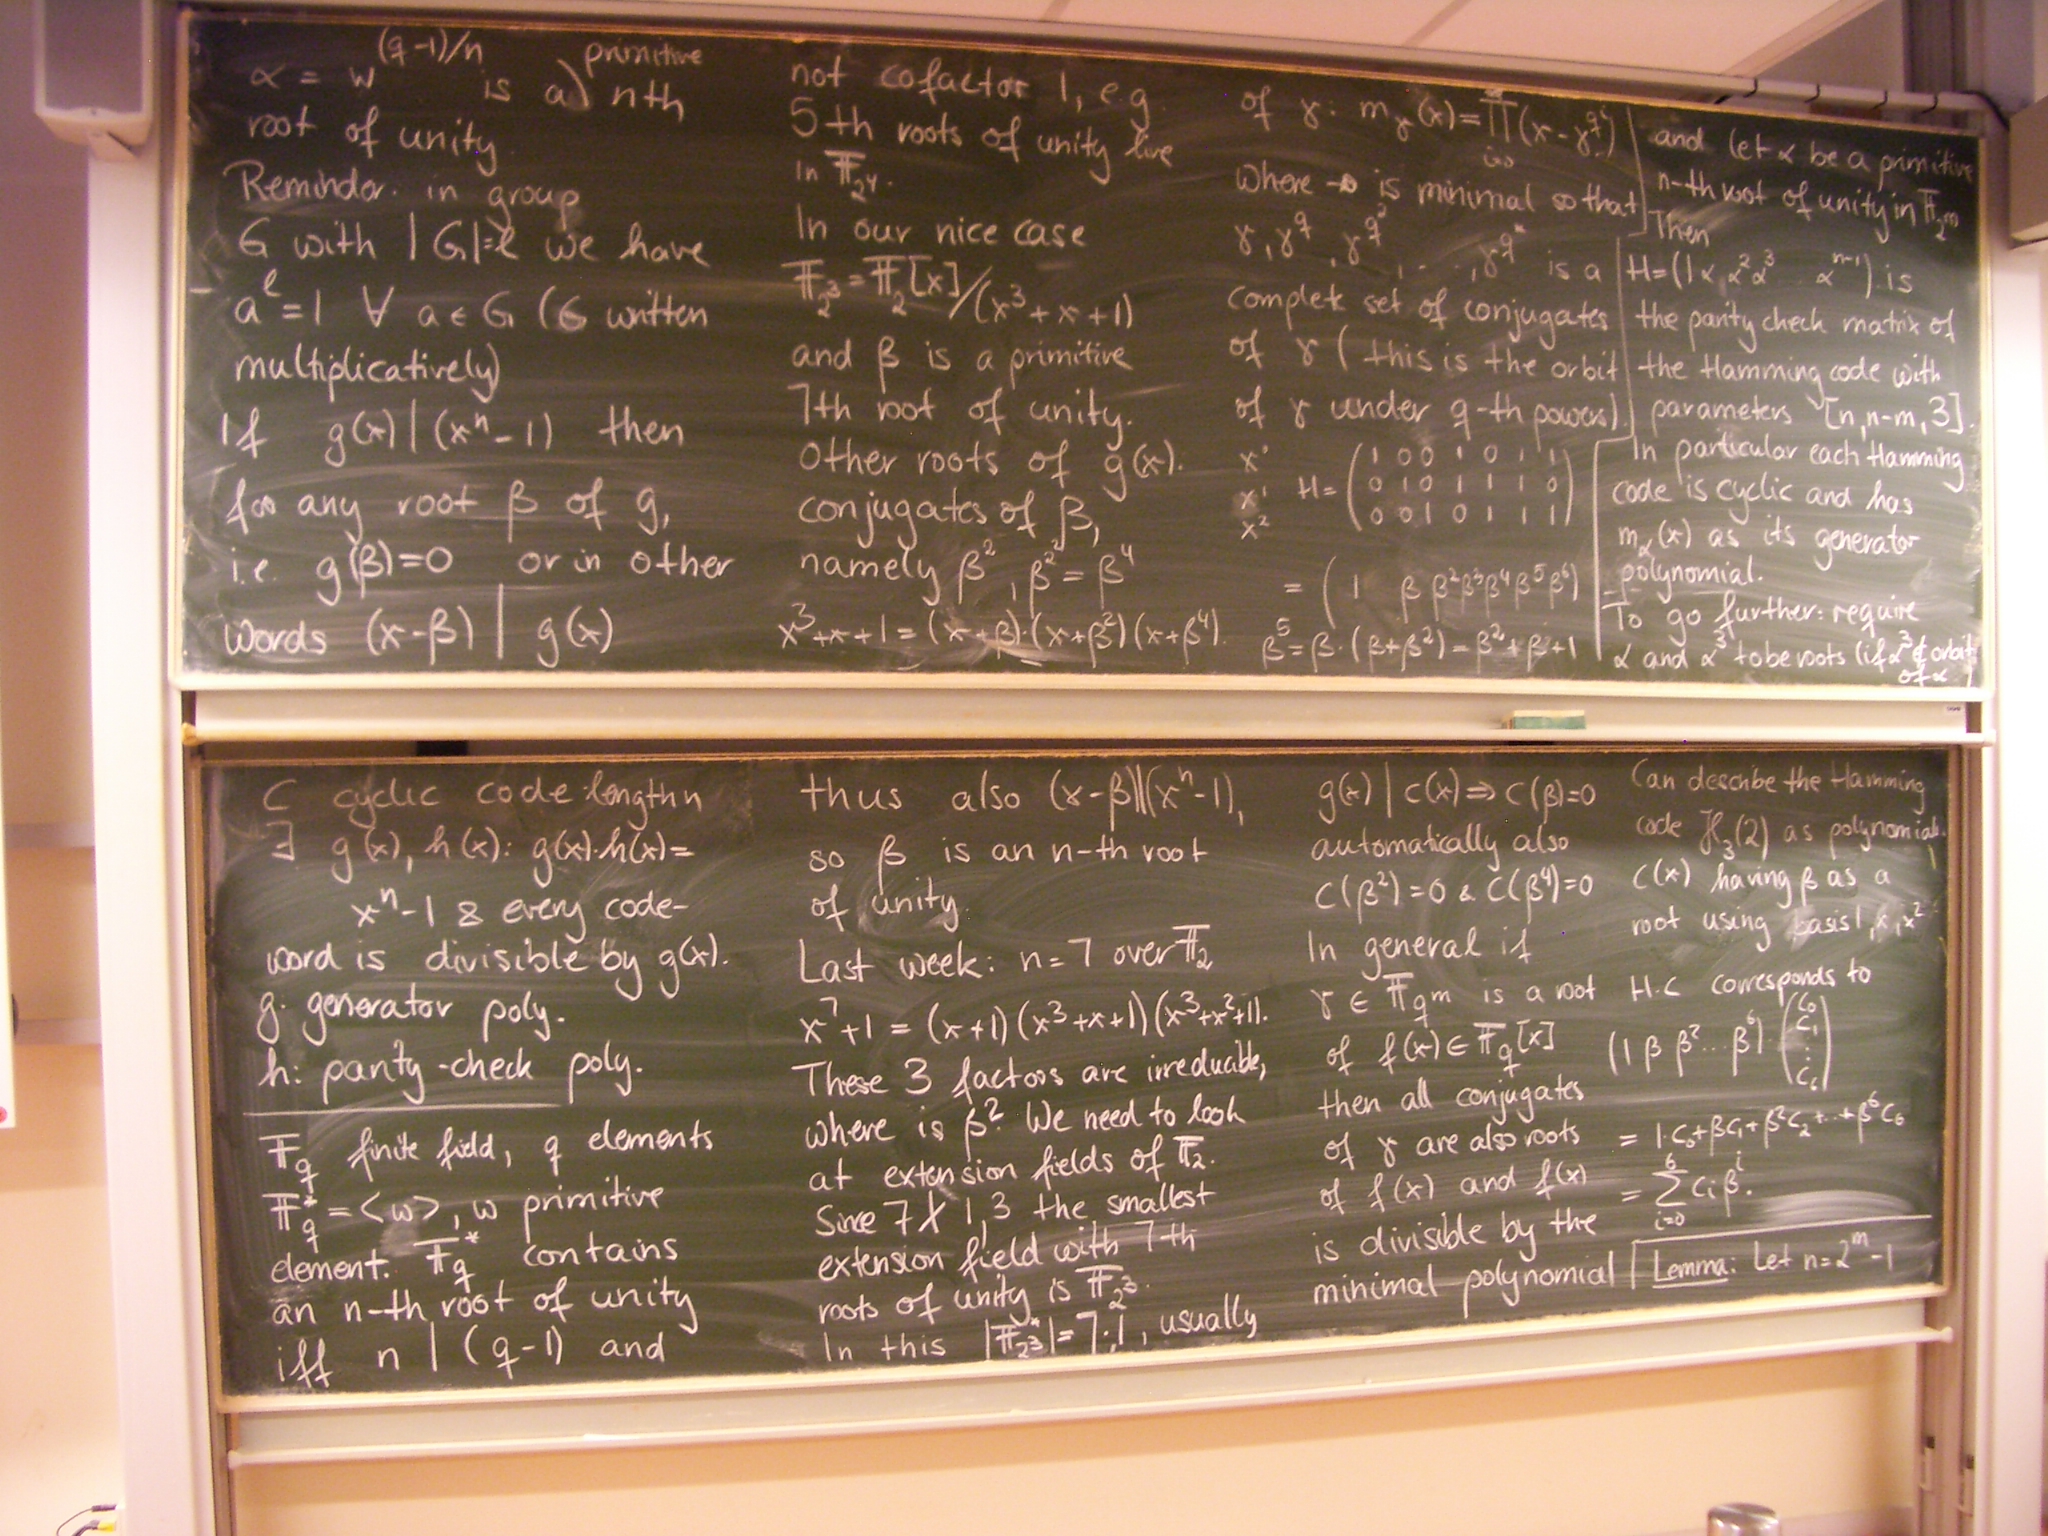 α = w^{(q-1)/n} is a primitive nth
root of unity.
Reminder. in group
G with |G|=l we have
a^l = 1 ∀ a ∈ G (G written
multiplicatively)
If g(x) | (x^n - 1) then
for any root β of g,
i.e. g(β)=0 or in other
words (x-β) | g(x)
not cofactor 1, e.g.
5-th roots of unity live
in F_{2^4}.
In our nice case
F_{2^3} = F_2[x]/(x^3+x+1)
and β is a primitive
7th root of unity.
Other roots of g(x).
conjugates of β,
namely β^2, β^{2^2} = β^4
x^3+x+1 = (x+β)·(x+β^2)(x+β^4).
of γ: m_γ(x) = ∏_{i=0} (x-γ^{q^i})
where is minimal so that
γ, γ^q, γ^{q^2}, ..., γ^{q^} is a
complete set of conjugates
of γ (this is the orbit
of γ under q-th powers)
x^0
x^1 H = (1 0 0 1 0 1 1
0 1 0 1 1 1 0
x^2 0 0 1 0 1 1 1)
= (1 β β^2 β^3 β^4 β^5 β^6)
β^5 = β·(β+β^2) = β^2+β+1
and let α be a primitive
n-th root of unity in F_{2^m}
Then
H=(1 α α^2 α^3 ... α^{n-1}) is
the parity check matrix of
the Hamming code with
parameters [n, n-m, 3].
In particular each Hamming
code is cyclic and has
m_α(x) as its generator
polynomial.
To go further: require
α and α^3 to be roots (if α^3 ∉ orbit
of α)
C cyclic code length n
∃ g(x), h(x): g(x)·h(x)=
x^n-1 & every code-
word is divisible by g(x).
g: generator poly.
h: parity-check poly.
F_q finite field, q elements
F_q^* = <w>, w primitive
element. F_q^* contains
an n-th root of unity
iff n | (q-1) and
thus also (x-β)|(x^n-1),
so β is an n-th root
of unity.
Last week: n=7 over F_2
x^7+1 = (x+1)(x^3+x+1)(x^3+x^2+1).
These 3 factors are irreducible,
where is β? We need to look
at extension fields of F_2.
Since 7∤1,3 the smallest
extension field with 7-th
roots of unity is F_{2^3}.
In this |F_{2^3}^*| = 7·1, usually
g(x) | c(x) ⇒ c(β)=0
automatically also
c(β^2)=0 & c(β^4)=0
In general if
γ ∈ F_{q^m} is a root
of f(x) ∈ F_q[x]
then all conjugates
of γ are also roots
of f(x) and f(x)
is divisible by the
minimal polynomial
Can describe the Hamming
code H_3(2) as polynomials
c(x) having β as a
root using basis 1, x, x^2
H·c corresponds to
(1 β β^2 ... β^6)·(c_0 c_1 : c_6)
= 1·c_0+βc_1+β^2c_2+...+β^6c_6
= ∑_{i=0}^{6} c_i β^i.
Lemma: Let n=2^m-1